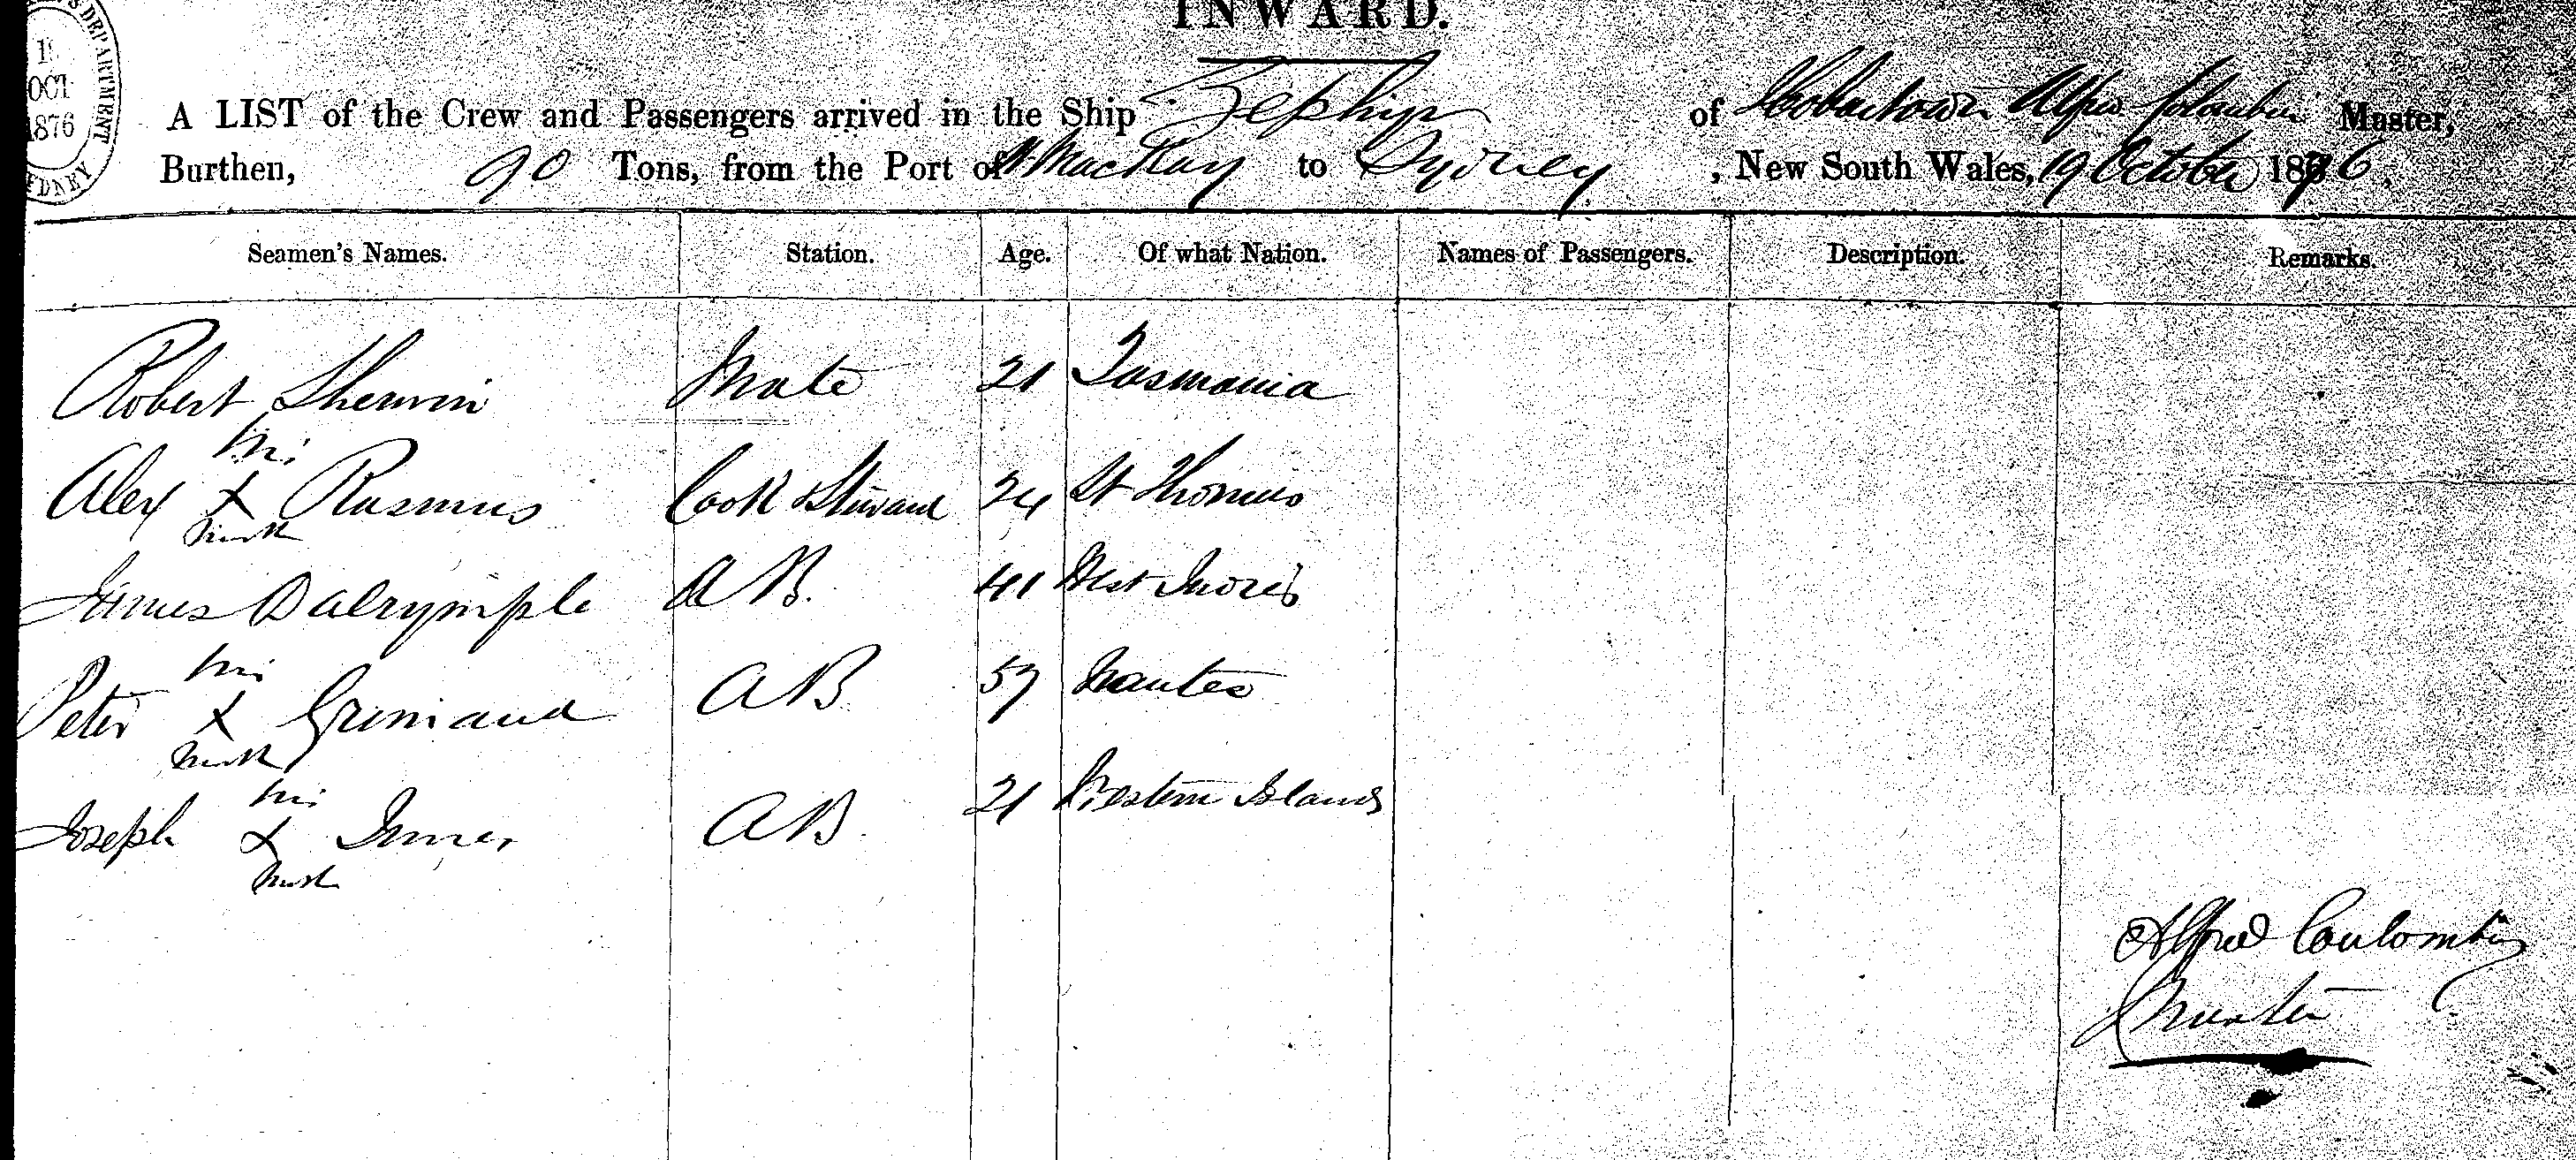 INWARD.
S DEPARTMENT
OCT
1876
SYDNEY
A LIST of the Crew and Passengers arrived in the Ship Zephyr of Hobartown Alfred Master,
Burthen, 90 Tons, from the Port of MacKay to Sydney, New South Wales, 19 October 1876.
Seamen's Names. Station. Age. Of what Nation. Names of Passengers. Description. Remarks.
Robert Sherwin Mate 21 Tasmania
his
Alex X Rasmus Cook & Steward 24 St Thomas
mark
James Dalrymple AB. 41 West Indies
his
Peter X AB 57 Nantes
mark
his
Joseph X AB 21 Western Islands
mark
Alfred Coulombin
Master